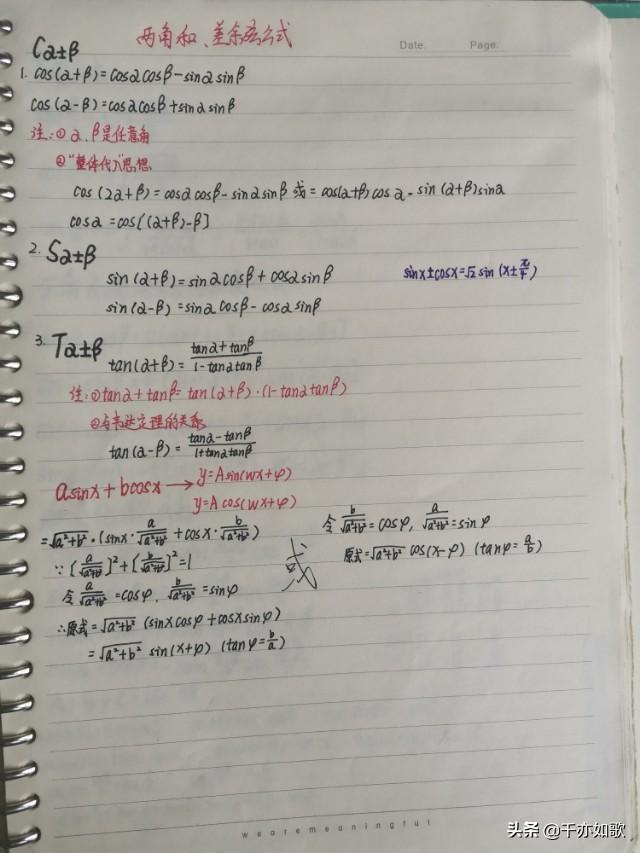 两角和、差余弦公式
Date.
Page.
Cα±β
1. cos(α+β)=cosαcosβ-sinαsinβ
cos(α-β)=cosαcosβ+sinαsinβ
注:①α、β是任意角
②"整体代入"思想
cos(2α+β)=cosαcosβ-sinαsinβ 或=cos(α+β)cosα-sin(α+β)sinα
cosα=cos[(α+β)-β]
2. Sα±β
sin(α+β)=sinαcosβ+cosαsinβ
sinx±cosx=√2sin(x±π/4)
sin(α-β)=sinαcosβ-cosαsinβ
3. Tα±β
tan(α+β)=(tanα+tanβ)/(1-tanαtanβ)
注:①tanα+tanβ=tan(α+β)·(1-tanαtanβ)
②与韦达定理的关系
tan(α-β)=(tanα-tanβ)/(1+tanαtanβ)
asinx+bcosx→y=Asin(wx+φ)
y=Acos(wx+φ)
=√(a²+b²)·(sinx·a/√(a²+b²)+cosx·b/√(a²+b²))
∵[a/√(a²+b²)]²+[b/√(a²+b²)]²=1
令a/√(a²+b²)=cosφ,b/√(a²+b²)=sinφ
∴原式=√(a²+b²)(sinxcosφ+cosxsinφ)
=√(a²+b²)sin(x+φ)(tanφ=b/a)
或
令b/√(a²+b²)=cosφ,a/√(a²+b²)=sinφ
原式=√(a²+b²)cos(x-φ)(tanφ=a/b)
wearemeaningful
头条@千亦如歌